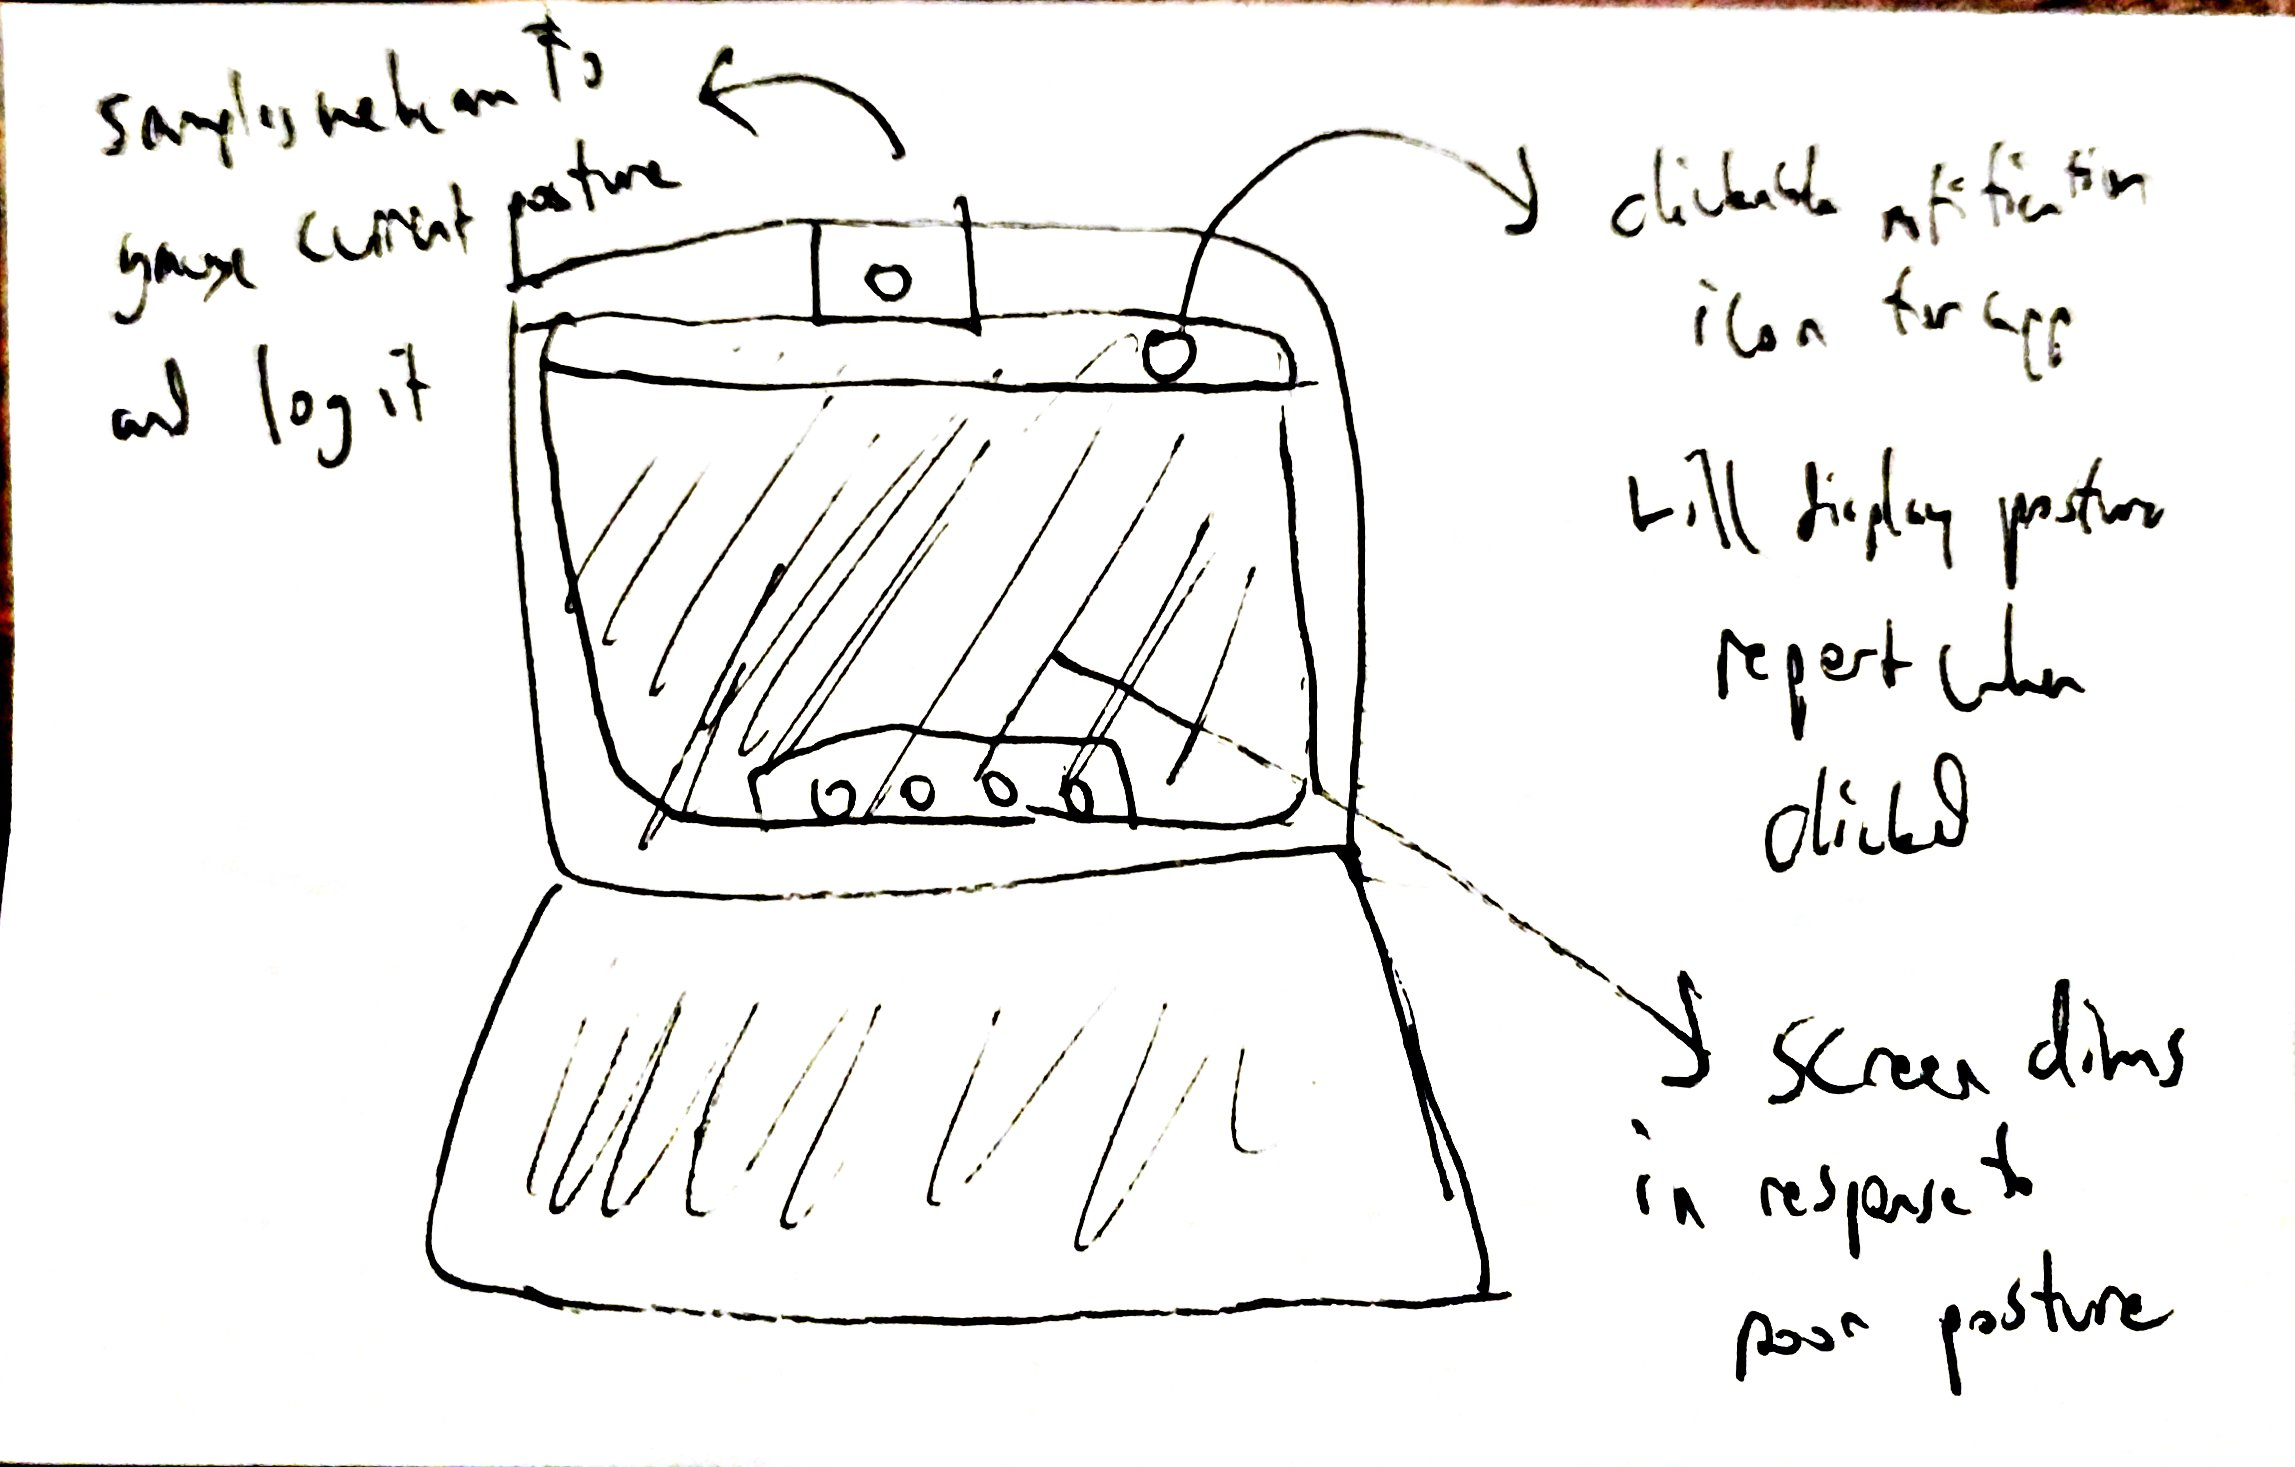 samples webcam to
gauge current posture
and log it
clickable notification
icon for app
will display posture
report when
clicked
screen dims
in response to
poor posture